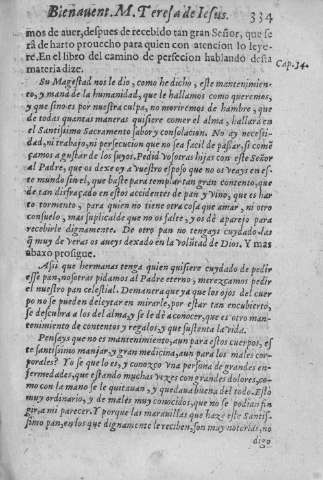 Bienauent. M. Teresa de Iesus. 334
mos de auer, despues de recebido tan gran Señor, que se
rá de harto prouecho para quien con atencion lo leye-
re. En el libro del camino de perfecion hablando desta
materia dize. Cap. 34.
Su Magestad nos le dio, como he dicho, este mantenimien-
to, y maná de la humanidad, que le hallamos como queremos,
y que sino es por nuestra culpa, no moriremos de hambre, que
de todas quantas maneras quisiere comer el alma, hallará en
el Santissimo Sacramento sabor y consolacion. No ay necesi-
dad, ni trabajo, ni persecucion que no sea facil de passar, si come
çamos a gustar de los suyos. Pedid vosotras hijas con este Señor
al Padre, que os dexe oy a vuestro esposo que no os veays en es-
te mundo sin el, que baste para templar tan gran contento, que
de tan disfraçado en estos accidentes de pan y vino, que es har
to tormento, para quien no tiene otra cosa que amar, ni otro
consuelo, mas suplicalde que no os falte, y os dé aparejo para
recebirle dignamente. De otro pan no tengays cuydado las
q̃ muy de veras os aueys dexado en la volũtad de Dios. Y mas
abaxo prosigue.
Assi que hermanas tenga quien quisiere cuydado de pedir
esse pan, nosotras pidamos al Padre eterno, merezcamos pedir
el nuestro pan celestial. De manera que ya que los ojos del cuer
po no se pueden deleytar en mirarle, por estar tan encubierto,
se descubra a los del alma, y se le dé a conocer, que es otro man-
tenimiento de contentos y regalos, y que sustenta la vida.
Pensays que no es mantenimiento, aun para estos cuerpos, es
te santissimo manjar, y gran medicina, aun para los males cor-
porales? Yo se que lo es, y conozco vna persona de grandes en-
fermedades, que estando muchas vezes con grandes dolores, co-
mo con la mano se le quitauan, y quedaua buena del todo. Esto
muy ordinario, y de males muy conocidos, que no se podian fin
gir, a mi parecer. Y porque las marauillas que haze este Santis-
simo pan, en los que dignamente le reciben, son muy notorias, no
digo